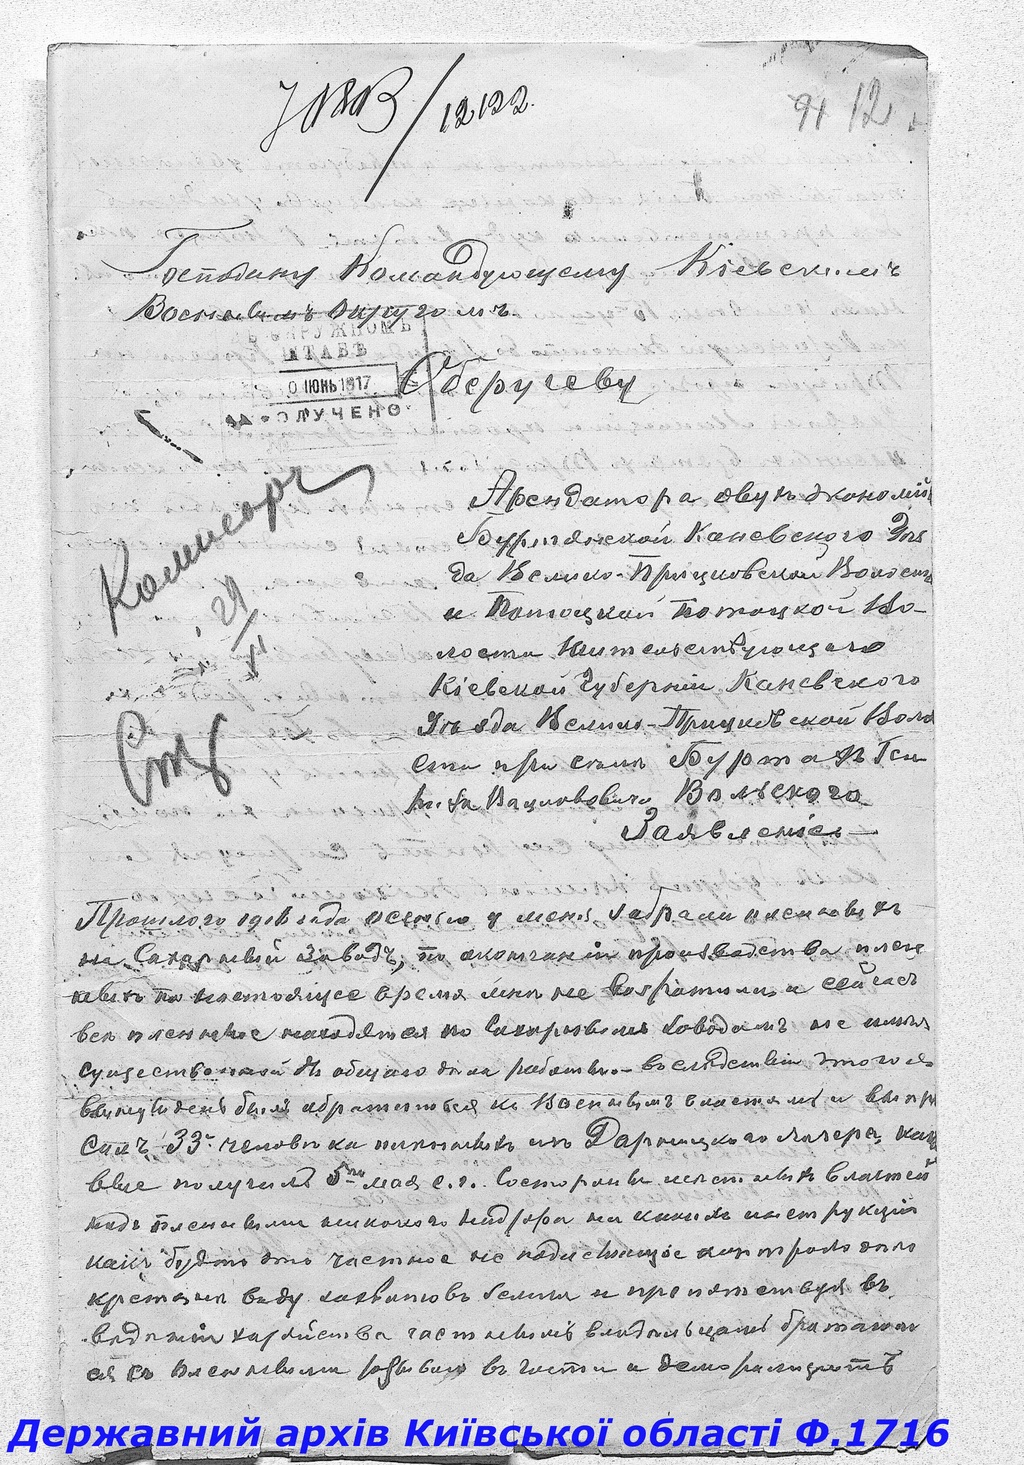 12122.
94 12
Господину Командующему Кіевскимъ
Военнымъ Округомъ.
ОКРУЖНОМЪ
ШТАБѢ
0 ІЮНЬ 1917
ПОЛУЧЕНО
Оберучеву
Комисаръ
29
XI
Арендатора двухъ экономій
Буртянской Каневского Уѣз
да Велико-Прицковской Волости
и Потоцкой Потоцкой Во-
лости Жительствующаго
Кіевской Губерніи Каневского
Уѣзда Велико-Прицковской Воло
сти при селѣ Бурта
Вацлововича Вольского
Заявленіе
Прошлого 1916 года осенью у меня забрали плѣнныхъ
на Сахарный Заводъ, по окончаніи производства плѣн
ныхъ по настоящее время мнѣ не возвратили и сейчасъ
всѣ плѣнные находятся по Сахарнымъ Заводамъ не имѣя
существенной для общаго дѣла работы. - Вслѣдствіи этого я
вынужденъ былъ обратиться къ Военнымъ властямъ и выпро
силъ 33 человѣка плѣнныхъ изъ Дарницкаго Лагера, како
вые получилъ 5го мая с.г. Со стороны мѣстныхъ властей
надъ плѣнными никакого надзора ни какихъ инструкцій
какъ будто это частное не подлежащее контролю дѣло
крестьяне ввиду захватовъ земли и препятствуя въ
веденіи хозяйства частнымъ владѣльцамъ братают
ся съ плѣнными въ гости и деморализуютъ
Державний архів Київської області Ф.1716